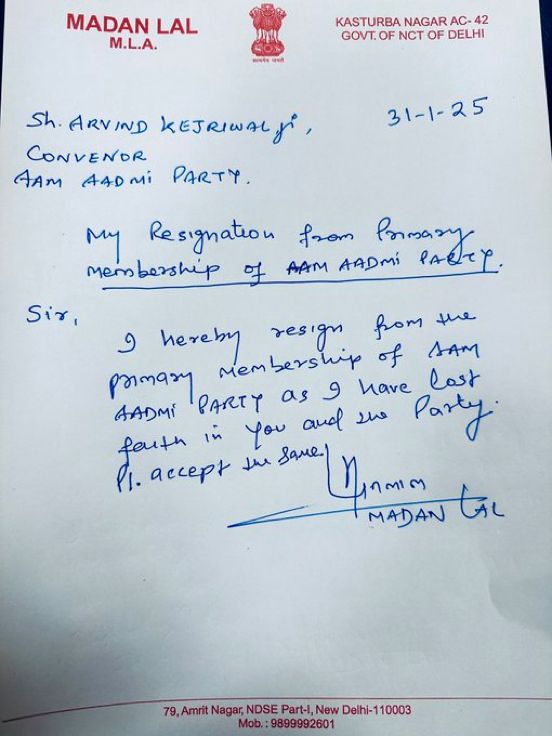 MADAN LAL
M.L.A.
सत्यमेव जयते
KASTURBA NAGAR AC- 42
GOVT. OF NCT OF DELHI
Sh. ARVIND KEJRIWAL ji,
31-1-25
CONVENOR
AAM AADMI PARTY.
My Resignation from Primary
membership of AAM AADMI PARTY.
Sir,
I hereby resign from the
primary membership of AAM
AADMI PARTY as I have lost
faith in you and the Party.
Pl. accept the same.
MADAN LAL
79, Amrit Nagar, NDSE Part-I, New Delhi-110003
Mob.: 9899992601